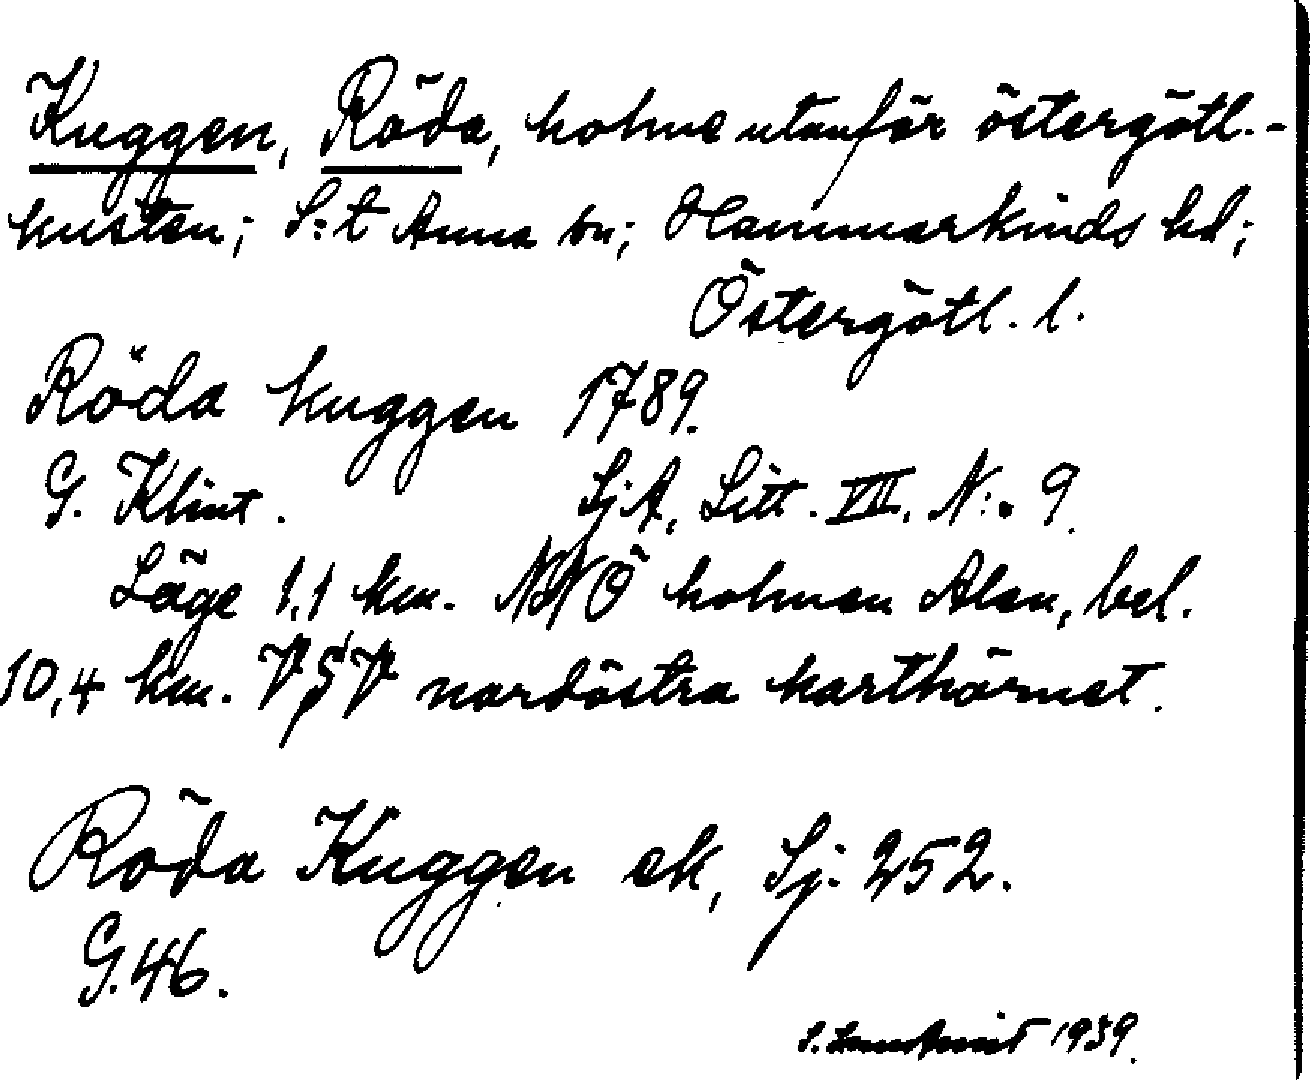 Kuggen, Röda, holme utanför östergötl.-
kusten; S:t Anna sn; Hammarkinds hd;
Östergötl. l.
Röda kuggen 1789.
G. Klint. SjA, Litt. VII. N:o 9.
Läge 1,1 km. NNÖ holmen Alen, bel.
10,4 km. VSV nordöstra karthörnet.
Röda Kuggen ek, Sj. 252.
G.46.
S. 1939.